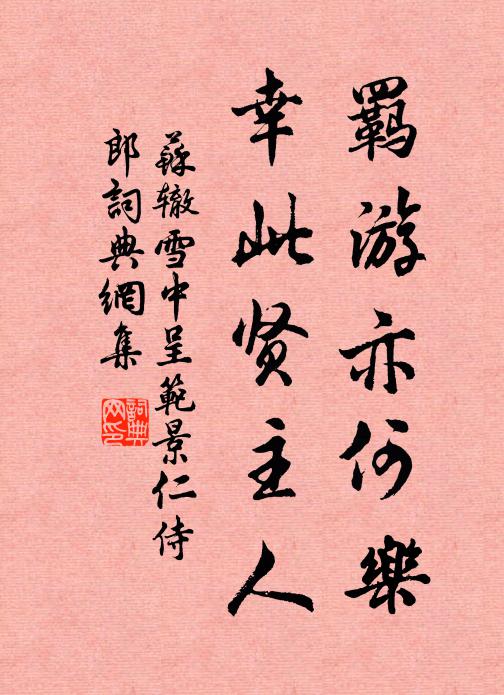 羈游亦何樂
幸此贤主人
蘇辙雪中呈範景仁侍
郎詞典網集
詞典網印